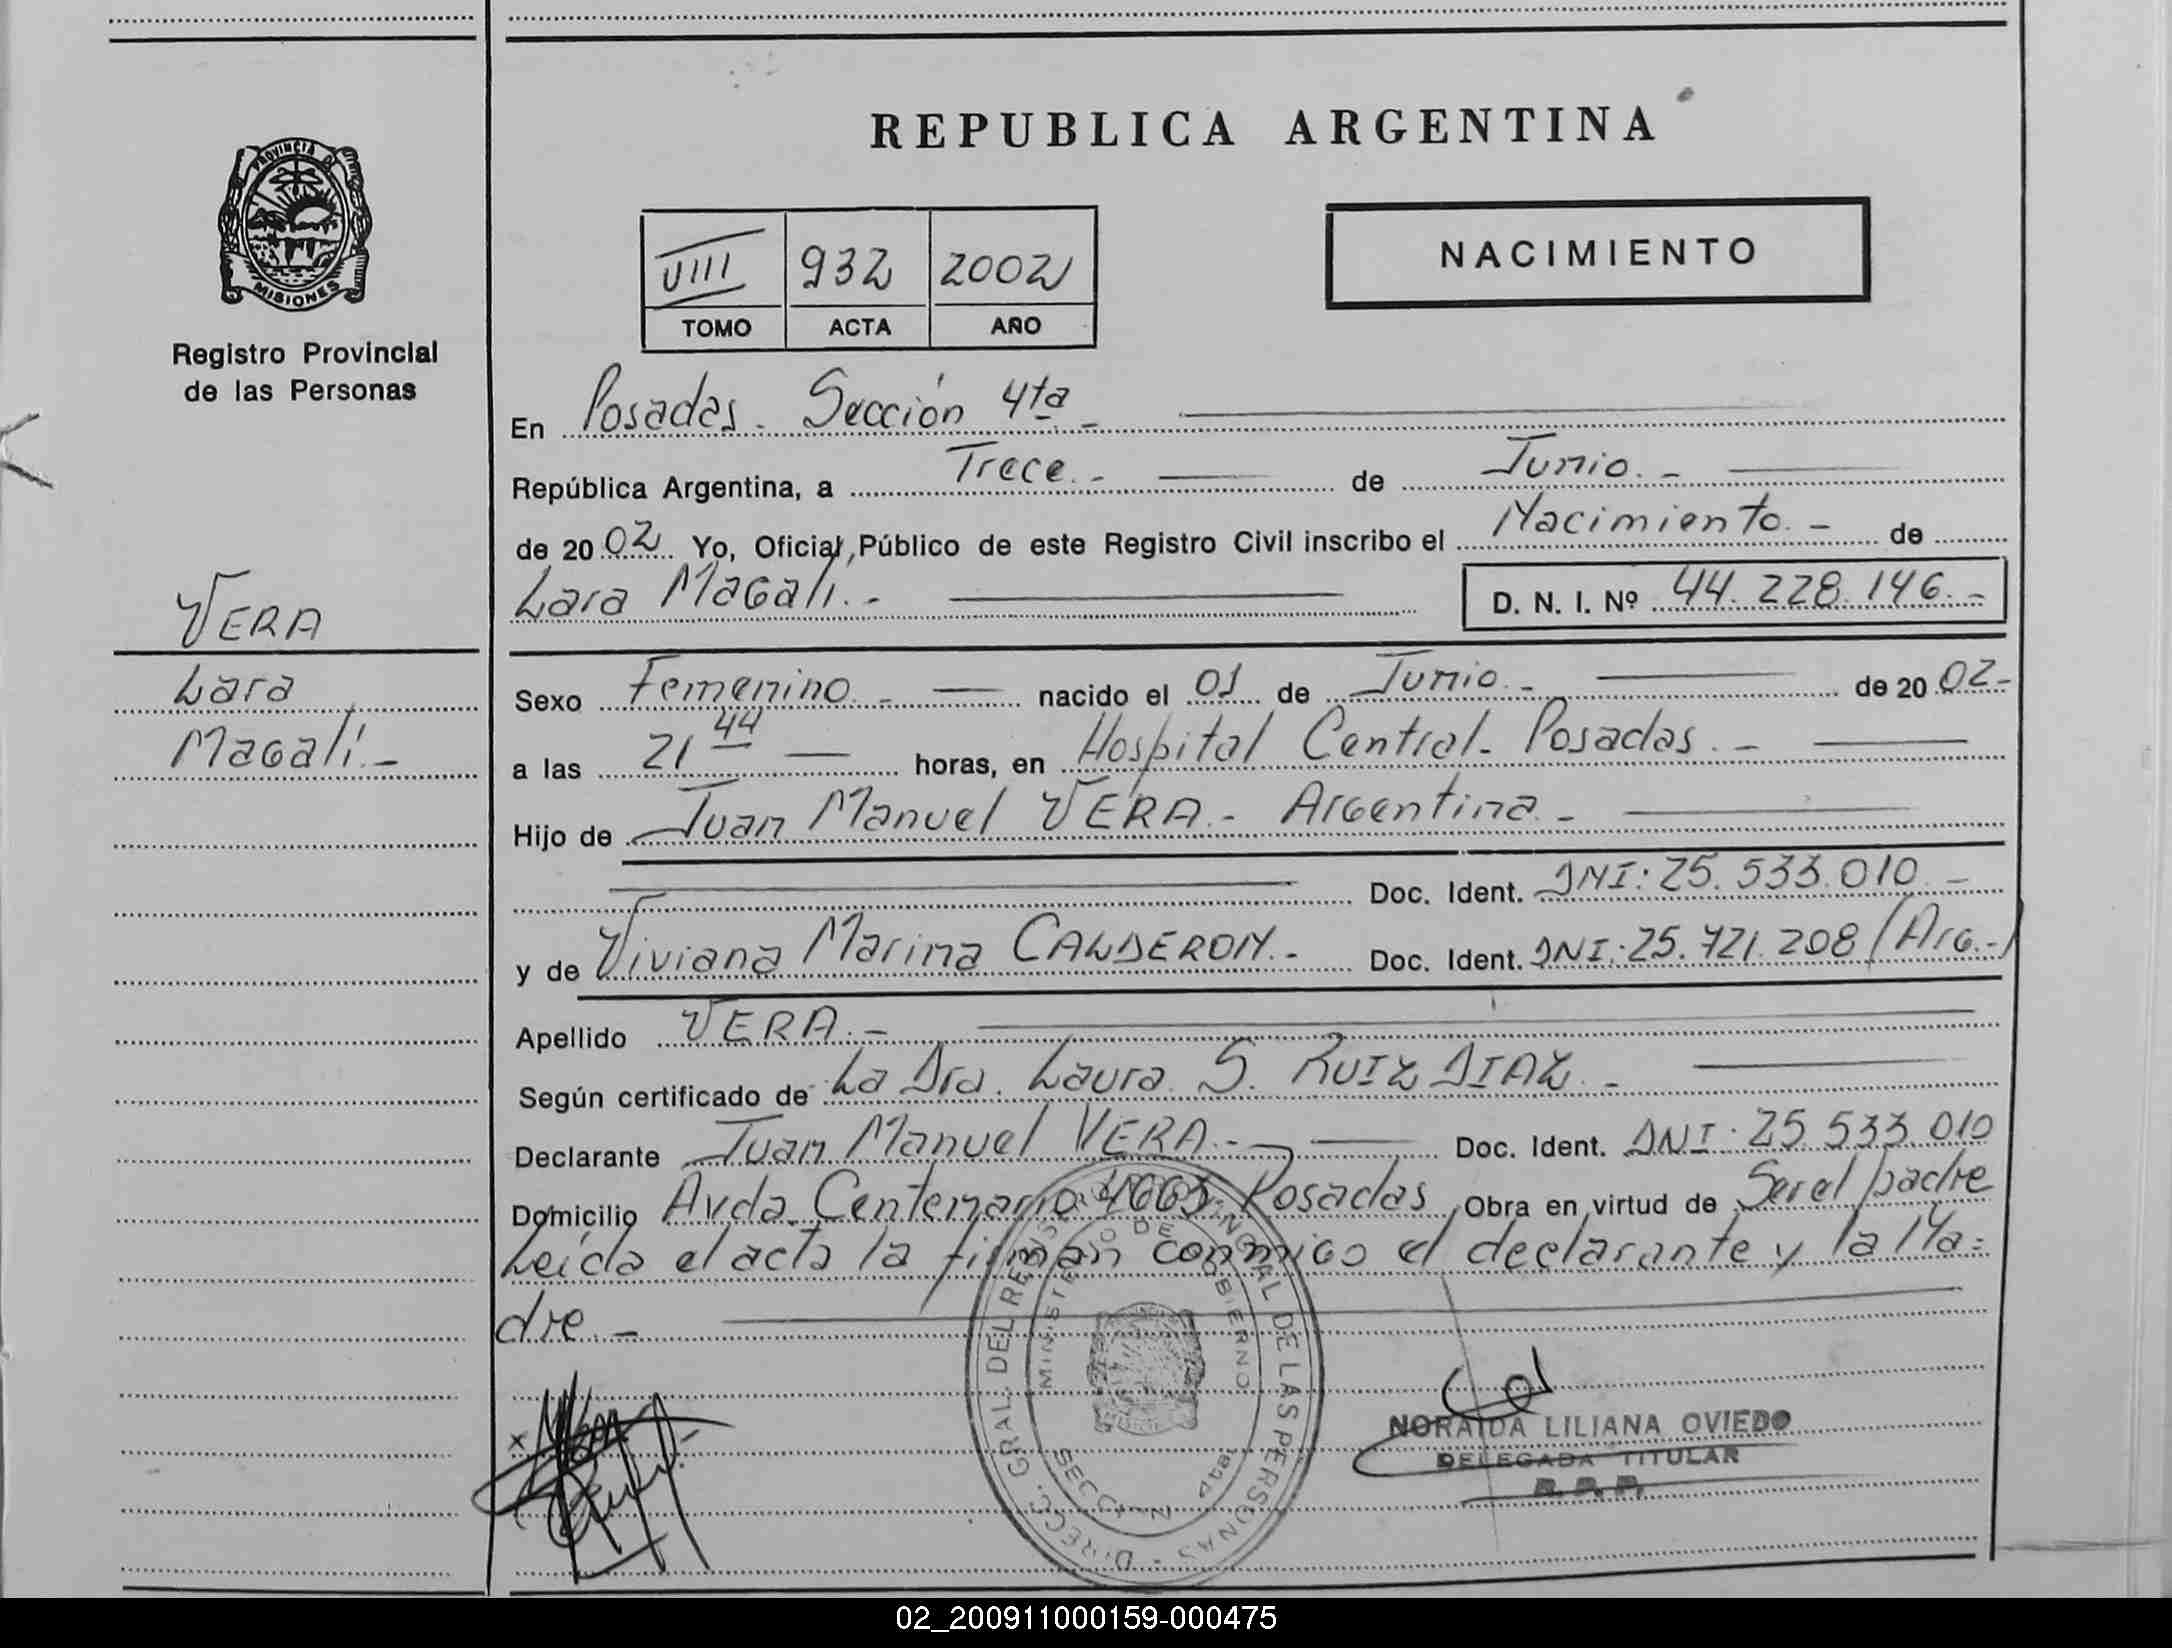 REPUBLICA ARGENTINA
PROVINCIA DE
MISIONES
Registro Provincial
de las Personas
VIII 932 2002
TOMO ACTA AÑO
NACIMIENTO
En Posadas. Sección 4ta -
República Argentina, a Trece.- de Junio.-
de 2002 Yo, Oficial Público de este Registro Civil inscribo el Nacimiento.- de
Lara Magalí.- D. N. I. Nº 44.228.146.-
VERA
Lara
Magalí.-
Sexo Femenino.- nacido el 01 de Junio.- de 2002-
a las 21 44 horas, en Hospital Central- Posadas.-
Hijo de Juan Manuel VERA.- Argentina.-
Doc. Ident. DNI: 25.533.010.-
y de Viviana Marina CALDERON.- Doc. Ident. DNI: 25.721.208 (Arg.-)
Apellido VERA.-
Según certificado de La Dra. Laura S. RUIZ DIAZ.-
Declarante Juan Manuel VERA.- Doc. Ident. DNI: 25.533.010
Domicilio Avda. Centenario Posadas Obra en virtud de Ser el padre
Leída el acta la firman conmigo el declarante y la Ma=
dre.-
DIRECC. GRAL. DEL REGISTRO PROVINCIAL DE LAS PERSONAS -
MINISTERIO DE GOBIERNO
SECCION 4ta.
NORAIDA LILIANA OVIEDO
DELEGADA TITULAR
R. P. P.
02_200911000159-000475